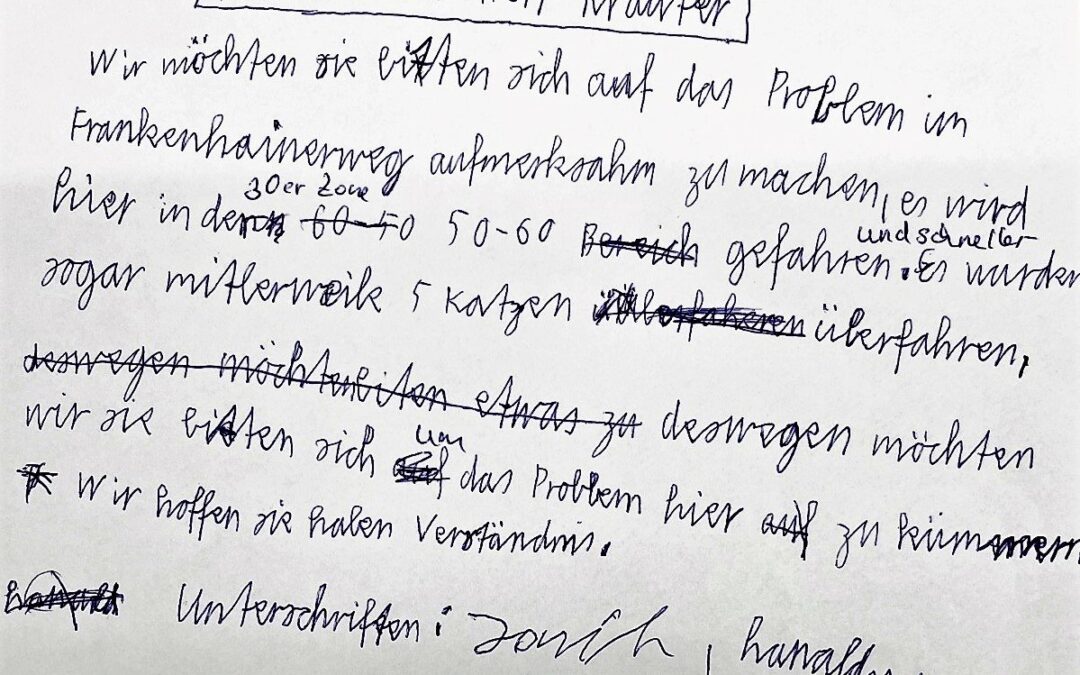 Kräuter
Wir möchten sie bitten sich auf das Problem im
Frankenhainerweg aufmerksahm zu machen, es wird
30er Zone
hier in der 60-50 50-60 Bereich gefahren. Es wurden
und schneller
sogar mitlerweile 5 Katzen überfahren,
deswegen möchten bitten etwas zu deswegen möchten
wir sie bitten sich um das Problem hier auf zu kümmern
Wir hoffen sie haben Verständnis.
Unterschriften: